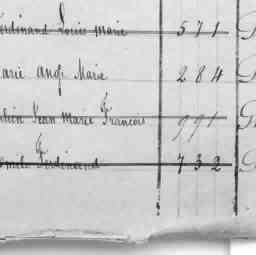 Ferdinand Louis Marie 571 G
Marie Angé Marie 284 G
Jean Marie François 991 G
Ferdinand 732 G